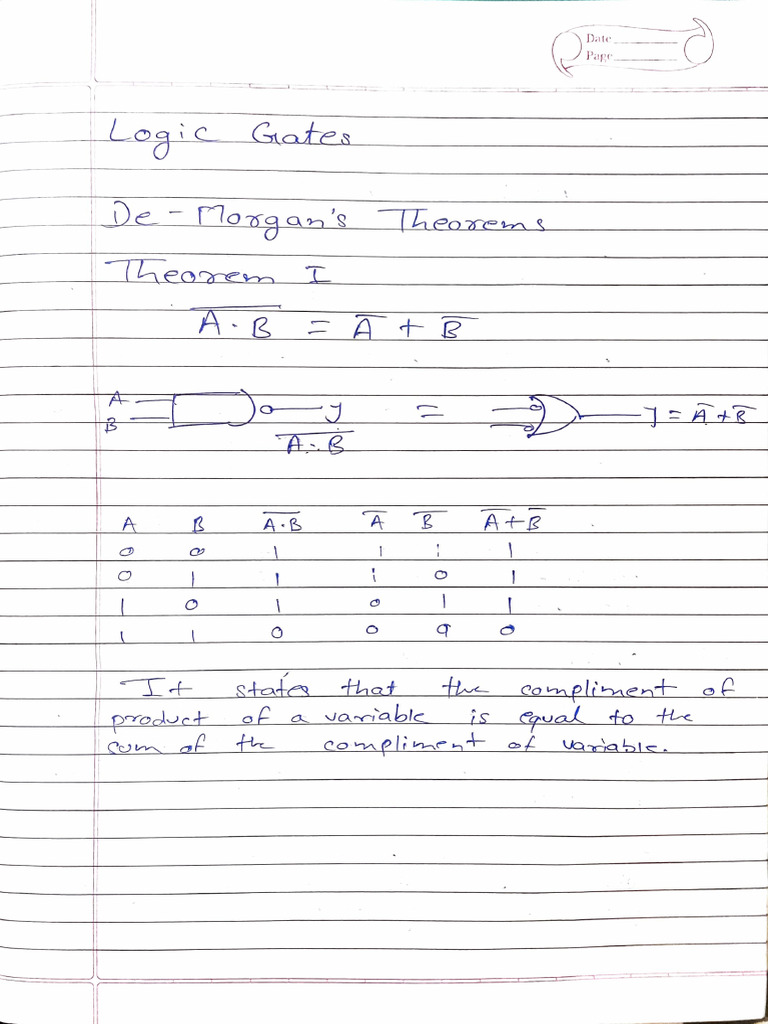 Date
Page
Logic Gates
De-Morgan's Theorems
Theorem I
A̅ ̅·̅ ̅B̅ = A̅ + B̅
A
B
y = y = A̅+B̅
A̅·̅B̅
A B A̅·̅B̅ A̅ B̅ A̅+B̅
0 0 1 1 1 1
0 1 1 1 0 1
1 0 1 0 1 1
1 1 0 0 0 0
It states that the compliment of
product of a variable is equal to the
sum of the compliment of variable.